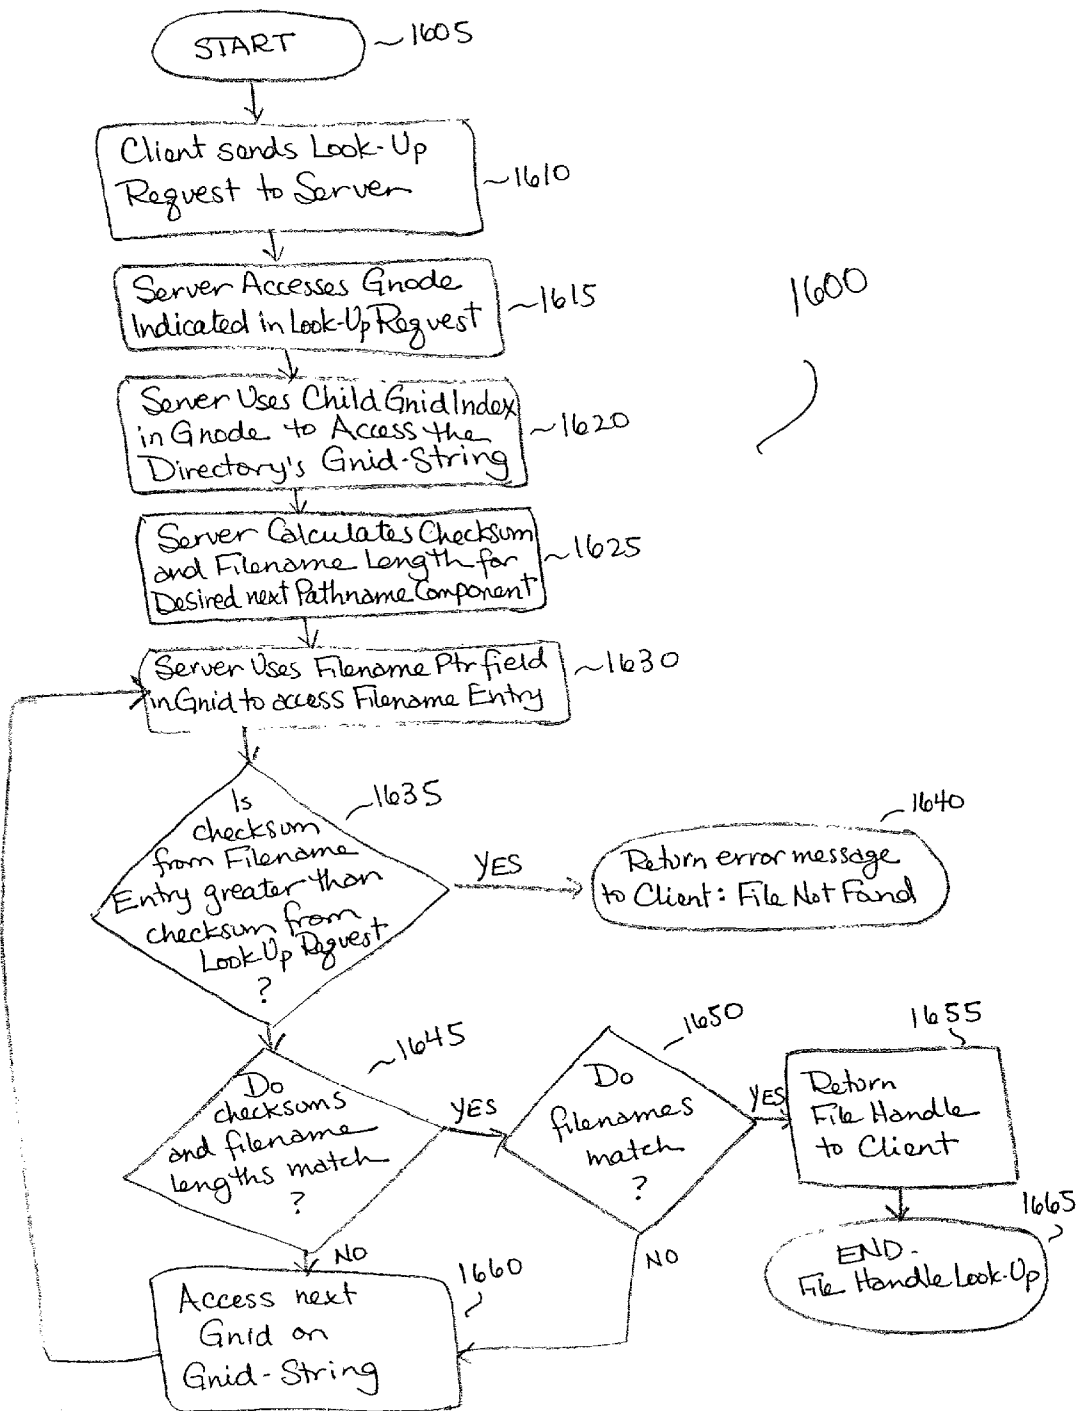 START
1605
Client sends Look-Up
Request to Server
1610
Server Accesses Gnode
Indicated in Look-Up Request
1615
1600
Server Uses Child Gnid Index
in Gnode to Access the
Directory's Gnid-String
1620
Server Calculates Checksum
and Filename Length for
Desired next Pathname Component
1625
Server Uses Filename Ptr field
in Gnid to access Filename Entry
1630
Is
checksum
from Filename
Entry greater than
checksum from
Look-Up Request
?
1635
YES
1640
Return error message
to Client: File Not Found
Do
checksums
and filename
lengths match
?
1645
YES
NO
Do
filenames
match
?
1650
YES
NO
1655
Return
File Handle
to Client
1665
END -
File Handle Look-Up
Access next
Gnid on
Gnid-String
1660